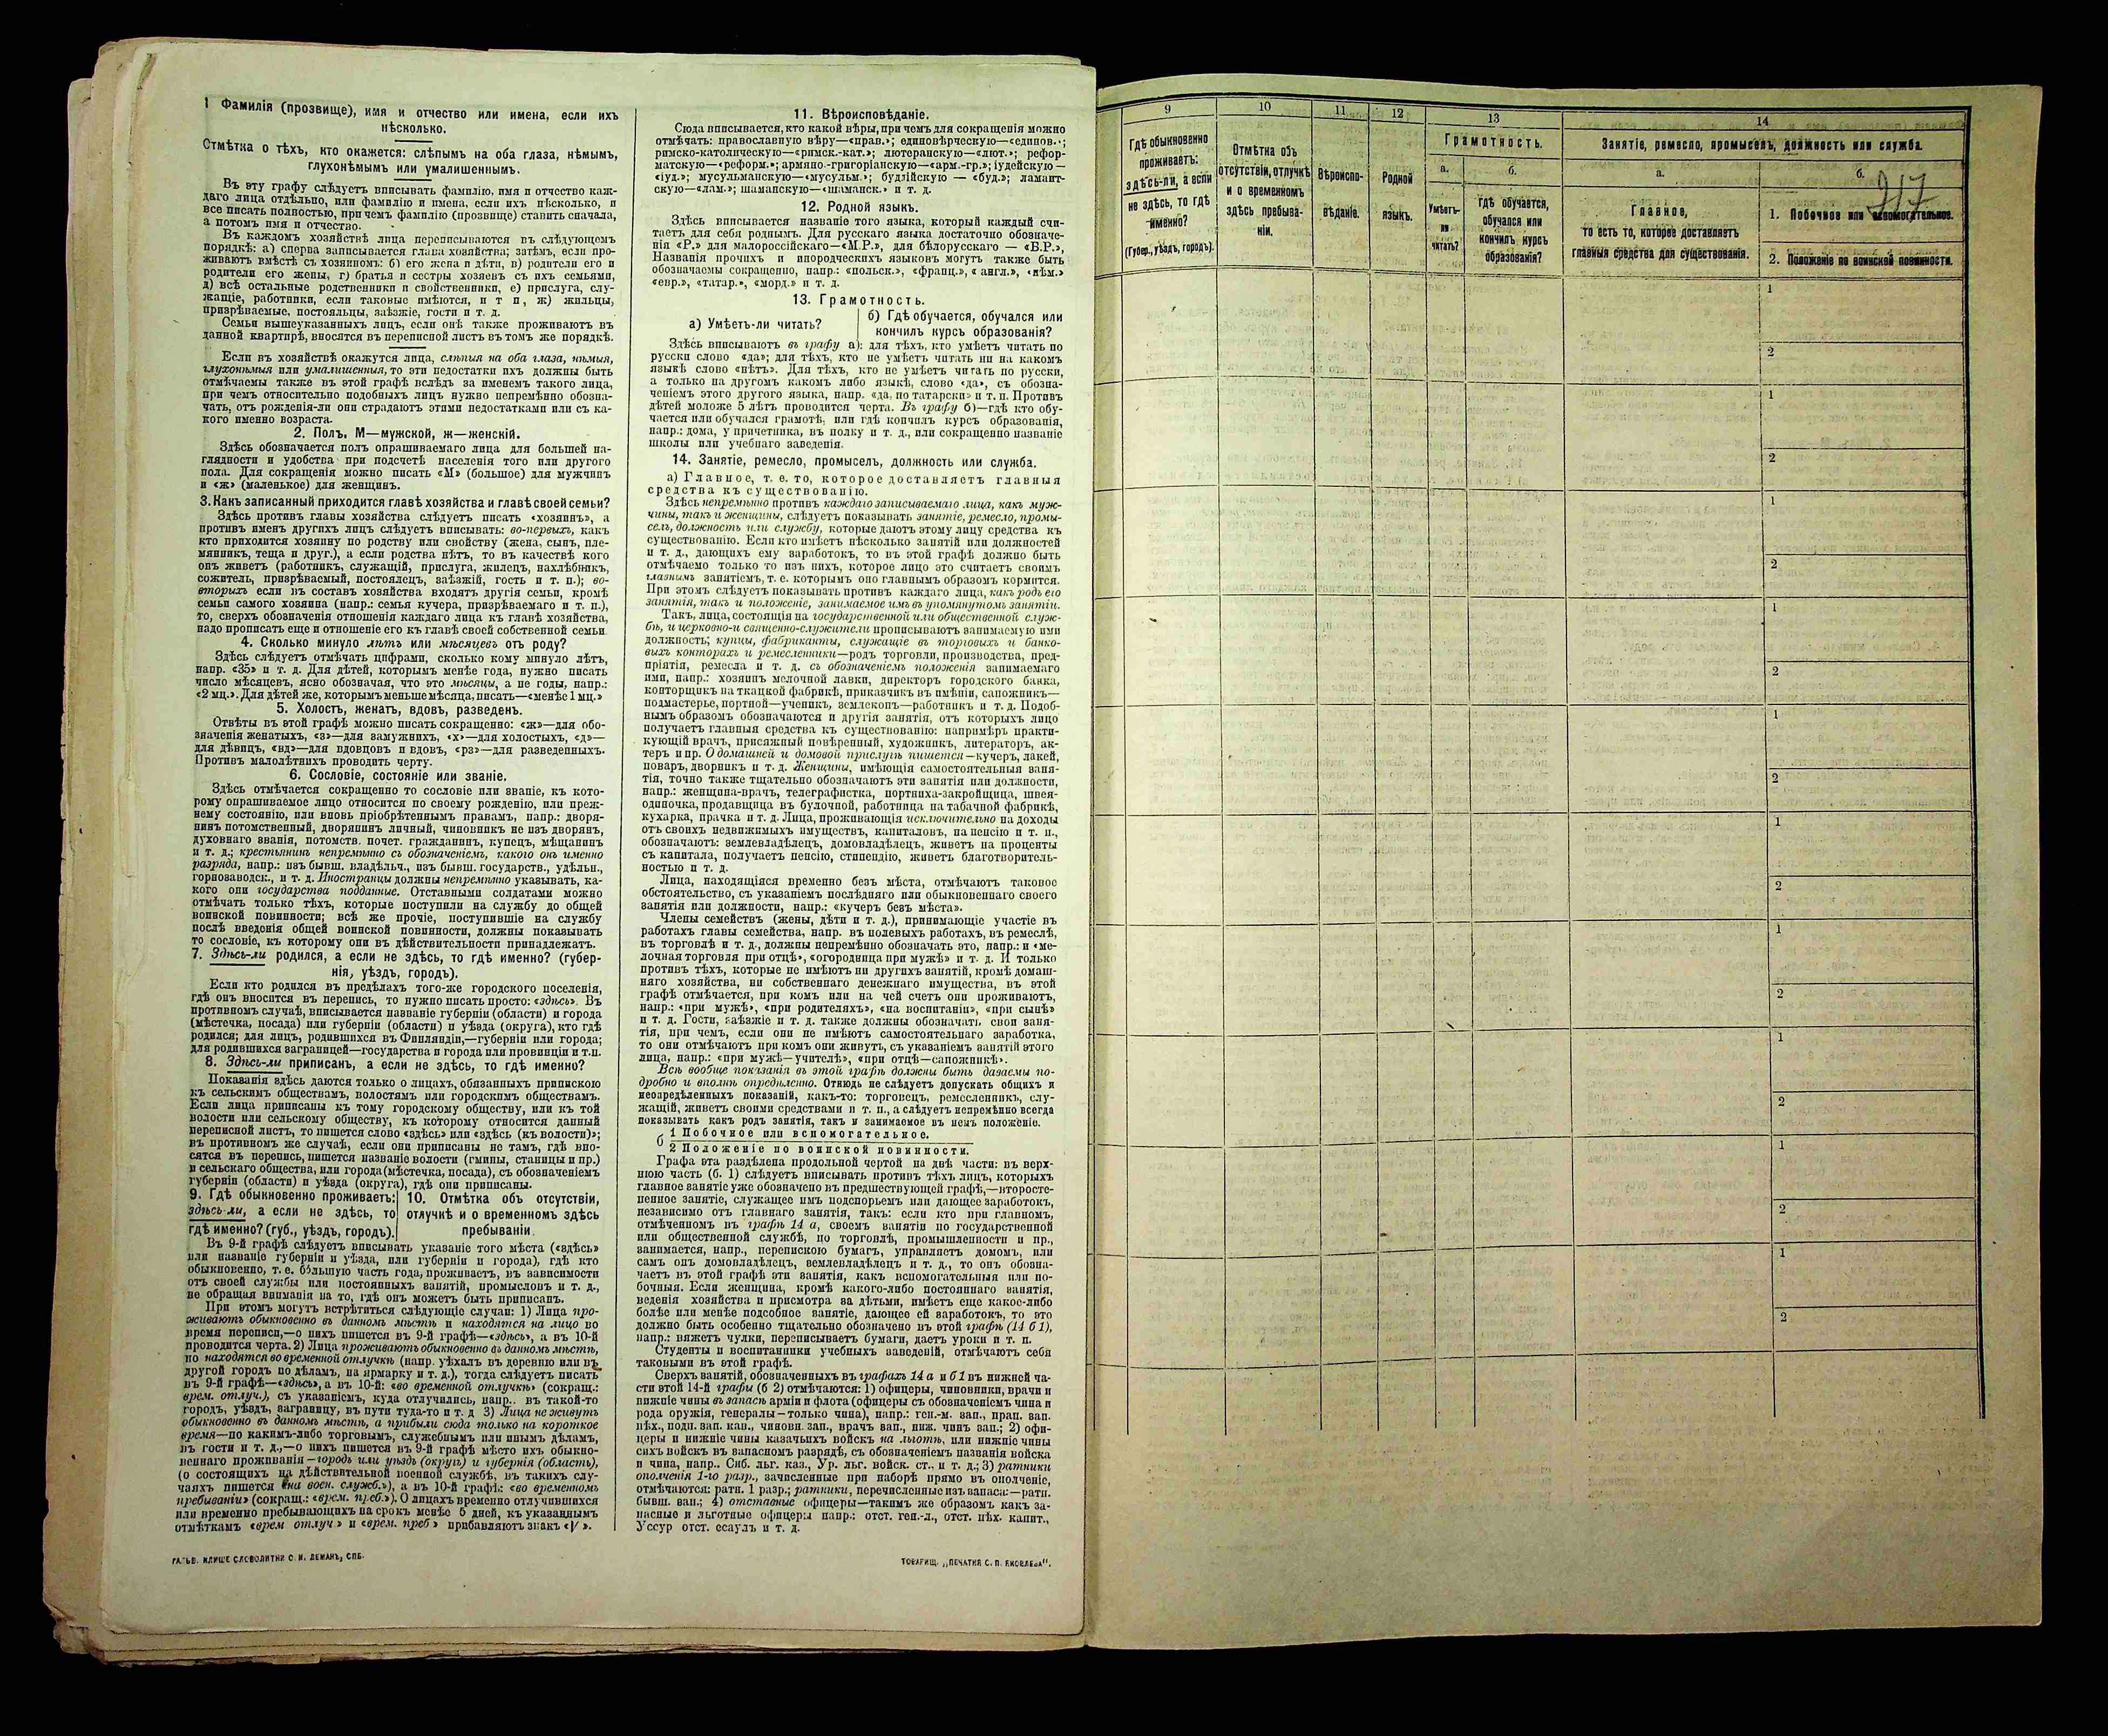 1 Фамилія (прозвище), имя и отчество или имена, если ихъ
нѣсколько.
Отмѣтка о тѣхъ, кто окажется: слѣпымъ на оба глаза, нѣмымъ,
глухонѣмымъ или умалишеннымъ.
Въ эту графу слѣдуетъ вписывать фамилію, имя и отчество каж-
даго лица отдѣльно, или фамилію и имена, если ихъ нѣсколько, и
все писать полностью, при чемъ фамилію (прозвище) ставить сначала,
а потомъ имя и отчество.
Въ каждомъ хозяйствѣ лица переписываются въ слѣдующемъ
порядкѣ: а) сперва записывается глава хозяйства; затѣмъ, если про-
живаютъ вмѣстѣ съ хозяиномъ: б) его жена и дѣти, в) родители его и
родители его жены, г) братья и сестры хозяевъ съ ихъ семьями,
д) всѣ остальные родственники и свойственники, е) прислуга, слу-
жащіе, работники, если таковые имѣются, и т п, ж) жильцы,
призрѣваемые, постояльцы, заѣзжіе, гости и т. д.
Семьи вышеуказанныхъ лицъ, если онѣ также проживаютъ въ
данной квартирѣ, вносятся въ переписной листъ въ томъ же порядкѣ.
Если въ хозяйствѣ окажутся лица, слѣпыя на оба глаза, нѣмыя,
глухонѣмыя или умалишенныя, то эти недостатки ихъ должны быть
отмѣчаемы также въ этой графѣ вслѣдъ за именемъ такого лица,
при чемъ относительно подобныхъ лицъ нужно непремѣнно обозна-
чать, отъ рожденія-ли они страдаютъ этими недостатками или съ ка-
кого именно возраста.
2. Полъ. М—мужской, ж—женскій.
Здѣсь обозначается полъ опрашиваемаго лица для большей на-
глядности и удобства при подсчетѣ населенія того или другого
пола. Для сокращенія можно писать «М» (большое) для мужчинъ
и «ж» (маленькое) для женщинъ.
3. Какъ записанный приходится главѣ хозяйства и главѣ своей семьи?
Здѣсь противъ главы хозяйства слѣдуетъ писать «хозяинъ», а
противъ именъ другихъ лицъ слѣдуетъ вписывать: во-первыхъ, какъ
кто приходится хозяину по родству или свойству (жена, сынъ, пле-
мянникъ, теща и друг.), а если родства нѣтъ, то въ качествѣ кого
онъ живетъ (работникъ, служащій, прислуга, жилецъ, нахлѣбникъ,
сожитель, призрѣваемый, постоялецъ, заѣзжій, гость и т. п.); во-
вторыхъ если въ составъ хозяйства входятъ другія семьи, кромѣ
семьи самого хозяина (напр.: семья кучера, призрѣваемаго и т. п.),
то, сверхъ обозначенія отношенія каждаго лица къ главѣ хозяйства,
надо прописать еще и отношеніе его къ главѣ своей собственной семьи
4. Сколько минуло лѣтъ или мѣсяцевъ отъ роду?
Здѣсь слѣдуетъ отмѣчать цифрами, сколько кому минуло лѣтъ,
напр. «35» и т. д. Для дѣтей, которымъ менѣе года, нужно писать
число мѣсяцевъ, ясно обозначая, что это мѣсяцы, а не годы, напр.:
«2 мц.». Для дѣтей же, которымъ меньше мѣсяца, писать—«менѣе 1 мц.»
5. Холостъ, женатъ, вдовъ, разведенъ.
Отвѣты въ этой графѣ можно писать сокращенно: «ж»—для обо-
значенія женатыхъ, «з»—для замужнихъ, «х»—для холостыхъ, «д»—
для дѣвицъ, «вд»—для вдовцовъ и вдовъ, «рз»—для разведенныхъ.
Противъ малолѣтнихъ проводить черту.
6. Сословіе, состояніе или званіе.
Здѣсь отмѣчается сокращенно то сословіе или званіе, къ кото-
рому опрашиваемое лицо относится по своему рожденію, или преж-
нему состоянію, или вновь пріобрѣтеннымъ правамъ, напр.: дворя-
нинъ потомственный, дворянинъ личный, чиновникъ не изъ дворянъ,
духовнаго званія, потомств. почет. гражданинъ, купецъ, мѣщанинъ
и т. д.; крестьянинъ непремѣнно съ обозначеніемъ, какого онъ именно
разряда, напр.: изъ бывш. владѣльч., изъ бывш. государств., удѣльн.,
горнозаводск., и т. д. Иностранцы должны непремѣнно указывать, ка-
кого они государства подданные. Отставными солдатами можно
отмѣчать только тѣхъ, которые поступили на службу до общей
воинской повинности; всѣ же прочіе, поступившіе на службу
послѣ введенія общей воинской повинности, должны показывать
то сословіе, къ которому они въ дѣйствительности принадлежатъ.
7. Здѣсь-ли родился, а если не здѣсь, то гдѣ именно? (губер-
нія, уѣздъ, городъ).
Если кто родился въ предѣлахъ того-же городского поселенія,
гдѣ онъ вносится въ перепись, то нужно писать просто: «здѣсь». Въ
противномъ случаѣ, вписывается названіе губерніи (области) и города
(мѣстечка, посада) или губерніи (области) и уѣзда (округа), кто гдѣ
родился; для лицъ, родившихся въ Финляндіи,—губерніи или города;
для родившихся заграницей—государства и города или провинціи и т.п.
8. Здѣсь-ли приписанъ, а если не здѣсь, то гдѣ именно?
Показанія здѣсь даются только о лицахъ, обязанныхъ припискою
къ сельскимъ обществамъ, волостямъ или городскимъ обществамъ.
Если лица приписаны къ тому городскому обществу, или къ той
волости или сельскому обществу, къ которому относится данный
переписной листъ, то пишется слово «здѣсь» или «здѣсь (къ волости)»;
въ противномъ же случаѣ, если они приписаны не тамъ, гдѣ вно-
сятся въ перепись, пишется названіе волости (гмины, станицы и пр.)
и сельскаго общества, или города (мѣстечка, посада), съ обозначеніемъ
губерніи (области) и уѣзда (округа), гдѣ они приписаны.
9. Гдѣ обыкновенно проживаетъ:
здѣсь-ли, а если не здѣсь, то
гдѣ именно? (губ., уѣздъ, городъ).
10. Отмѣтка объ отсутствіи,
отлучкѣ и о временномъ здѣсь
пребываніи.
Въ 9-й графѣ слѣдуетъ вписывать указаніе того мѣста («здѣсь»
или названіе губерніи и уѣзда, или губерніи и города), гдѣ кто
обыкновенно, т. е. большую часть года, проживаетъ, въ зависимости
отъ своей службы или постоянныхъ занятій, промысловъ и т. д.,
не обращая вниманія на то, гдѣ онъ можетъ быть приписанъ.
При этомъ могутъ встрѣтиться слѣдующіе случаи: 1) Лица про-
живаютъ обыкновенно въ данномъ мѣстѣ и находятся на лицо во
время переписи,—о нихъ пишется въ 9-й графѣ—«здѣсь», а въ 10-й
проводится черта. 2) Лица проживаютъ обыкновенно въ данномъ мѣстѣ,
но находятся во временной отлучкѣ (напр. уѣхалъ въ деревню или въ
другой городъ по дѣламъ, на ярмарку и т. д.), тогда слѣдуетъ писать
въ 9-й графѣ—«здѣсь», а въ 10-й: «во временной отлучкѣ» (сокращ.:
врем. отлуч.), съ указаніемъ, куда отлучились, напр.. въ такой-то
городъ, уѣздъ, заграницу, въ пути туда-то и т. д 3) Лица не живутъ
обыкновенно въ данномъ мѣстѣ, а прибыли сюда только на короткое
время—по какимъ-либо торговымъ, служебнымъ или инымъ дѣламъ,
въ гости и т. д.,—о нихъ пишется въ 9-й графѣ мѣсто ихъ обыкно-
веннаго проживанія—городъ или уѣздъ (округъ) и губернія (область),
(о состоящихъ на дѣйствительной военной службѣ, въ такихъ слу-
чаяхъ пишется «на воен. служб.»), а въ 10-й графѣ: «во временномъ
пребываніи» (сокращ.: «врем. преб.»). О лицахъ временно отлучившихся
или временно пребывающихъ на срокъ менѣе 5 дней, къ указаннымъ
отмѣткамъ «врем отлуч» и «врем. преб» прибавляютъ знакъ «|/».
ГАЛЬВ. КЛИШЕ СЛОВОЛИТНИ О. И. ЛЕМАНЪ, СПБ.
11. Вѣроисповѣданіе.
Сюда вписывается, кто какой вѣры, при чемъ для сокращенія можно
отмѣчать: православную вѣру—«прав.»; единовѣрческую—«единов.»;
римско-католическую—«римск.-кат.»; лютеранскую—«лют.»; рефор-
матскую—«реформ.»; армяно-григоріанскую—«арм.-гр.»; іудейскую—
«іуд.»; мусульманскую—«мусульм.»; буддійскую — «буд.»; ламаит-
скую—«лам.»; шаманскую—«шаманск.» и т. д.
12. Родной языкъ.
Здѣсь вписывается названіе того языка, который каждый счи-
таетъ для себя роднымъ. Для русскаго языка достаточно обозначе-
нія «Р.» для малороссійскаго—«М.Р.», для бѣлорусскаго — «Б.Р.»,
Названія прочихъ и инородческихъ языковъ могутъ также быть
обозначаемы сокращенно, напр.: «польск.», «франц.», «англ.», «нѣм.»
«евр.», «татар.», «морд.» и т. д.
13. Грамотность.
а) Умѣетъ-ли читать?
б) Гдѣ обучается, обучался или
кончилъ курсъ образованія?
Здѣсь вписываютъ въ графу а): для тѣхъ, кто умѣетъ читать по
русски слово «да»; для тѣхъ, кто не умѣетъ читать ни на какомъ
языкѣ слово «нѣтъ». Для тѣхъ, кто не умѣетъ читать по русски,
а только на другомъ какомъ либо языкѣ, слово «да», съ обозна-
ченіемъ этого другого языка, напр. «да, по татарски» и т. п. Противъ
дѣтей моложе 5 лѣтъ проводится черта. Въ графу б)—гдѣ кто обу-
чается или обучался грамотѣ, или гдѣ кончилъ курсъ образованія,
напр.: дома, у причетника, въ полку и т. д., или сокращенно названіе
школы или учебнаго заведенія.
14. Занятіе, ремесло, промыселъ, должность или служба.
а) Главное, т. е. то, которое доставляетъ главныя
средства къ существованію.
Здѣсь непремѣнно противъ каждаго записываемаго лица, какъ муж-
чины, такъ и женщины, слѣдуетъ показывать занятіе, ремесло, промы-
селъ, должность или службу, которые даютъ этому лицу средства къ
существованію. Если кто имѣетъ нѣсколько занятій или должностей
и т. д., дающихъ ему заработокъ, то въ этой графѣ должно быть
отмѣчаемо только то изъ нихъ, которое лицо это считаетъ своимъ
главнымъ занятіемъ, т. е. которымъ оно главнымъ образомъ кормится.
При этомъ слѣдуетъ показывать противъ каждаго лица, какъ родъ его
занятія, такъ и положеніе, занимаемое имъ въ упомянутомъ занятіи.
Такъ, лица, состоящія на государственной или общественной служ-
бѣ, и церковно-и священно-служители прописываютъ занимаемую ими
должность; купцы, фабриканты, служащіе въ торговыхъ и банко-
выхъ конторахъ и ремесленники—родъ торговли, производства, пред-
пріятія, ремесла и т. д. съ обозначеніемъ положенія занимаемаго
ими, напр.: хозяинъ мелочной лавки, директоръ городского банка,
конторщикъ на ткацкой фабрикѣ, приказчикъ въ имѣніи, сапожникъ—
подмастерье, портной—ученикъ, землекопъ—работникъ и т. д. Подоб-
нымъ образомъ обозначаются и другія занятія, отъ которыхъ лицо
получаетъ главныя средства къ существованію: напримѣръ практи-
кующій врачъ, присяжный повѣренный, художникъ, литераторъ, ак-
теръ и пр. О домашней и домовой прислугѣ пишется—кучеръ, лакей,
поваръ, дворникъ и т. д. Женщины, имѣющія самостоятельныя заня-
тія, точно также тщательно обозначаютъ эти занятія или должности,
напр.: женщина-врачъ, телеграфистка, портниха-закройщица, швея-
одиночка, продавщица въ булочной, работница на табачной фабрикѣ,
кухарка, прачка и т. д. Лица, проживающія исключительно на доходы
отъ своихъ недвижимыхъ имуществъ, капиталовъ, на пенсію и т. п.,
обозначаютъ: землевладѣлецъ, домовладѣлецъ, живетъ на проценты
съ капитала, получаетъ пенсію, стипендію, живетъ благотворитель-
ностью и т. д.
Лица, находящіяся временно безъ мѣста, отмѣчаютъ таковое
обстоятельство, съ указаніемъ послѣдняго или обыкновеннаго своего
занятія или должности, напр.: «кучеръ безъ мѣста».
Члены семействъ (жены, дѣти и т. д.), принимающіе участіе въ
работахъ главы семейства, напр. въ полевыхъ работахъ, въ ремеслѣ,
въ торговлѣ и т. д., должны непремѣнно обозначать это, напр.: и «ме-
лочная торговля при отцѣ», «огородница при мужѣ» и т. д. И только
противъ тѣхъ, которые не имѣютъ ни другихъ занятій, кромѣ домаш-
няго хозяйства, ни собственнаго денежнаго имущества, въ этой
графѣ отмѣчается, при комъ или на чей счетъ они проживаютъ,
напр.: «при мужѣ», «при родителяхъ», «на воспитаніи», «при сынѣ»
и т. д. Гости, заѣзжіе и т. д. также должны обозначать свои заня-
тія, при чемъ, если они не имѣютъ самостоятельнаго заработка,
то они отмѣчаютъ при комъ они живутъ, съ указаніемъ занятій этого
лица, напр.: «при мужѣ—учителѣ», «при отцѣ—сапожникѣ».
Всѣ вообще показанія въ этой графѣ должны быть даваемы по-
дробно и вполнѣ опредѣленно. Отнюдь не слѣдуетъ допускать общихъ и
неопредѣленныхъ показаній, какъ-то: торговецъ, ремесленникъ, слу-
жащій, живетъ своими средствами и т. п., а слѣдуетъ непремѣнно всегда
показывать какъ родъ занятія, такъ и занимаемое въ немъ положеніе.
б 1 Побочное или вспомогательное.
2 Положеніе по воинской повинности.
Графа эта раздѣлена продольной чертой на двѣ части: въ верх-
нюю часть (б. 1) слѣдуетъ вписывать противъ тѣхъ лицъ, которыхъ
главное занятіе уже обозначено въ предшествующей графѣ,—второсте-
пенное занятіе, служащее имъ подспорьемъ или дающее заработокъ,
независимо отъ главнаго занятія, такъ: если кто при главномъ,
отмѣченномъ въ графѣ 14 а, своемъ занятіи по государственной
или общественной службѣ, по торговлѣ, промышленности и пр.,
занимается, напр., перепискою бумагъ, управляетъ домомъ, или
самъ онъ домовладѣлецъ, землевладѣлецъ и т. д., то онъ обозна-
чаетъ въ этой графѣ эти занятія, какъ вспомогательныя или по-
бочныя. Если женщина, кромѣ какого-либо постояннаго занятія,
веденія хозяйства и присмотра за дѣтьми, имѣетъ еще какое-либо
болѣе или менѣе подсобное занятіе, дающее ей заработокъ, то это
должно быть особенно тщательно обозначено въ этой графѣ (14 б 1),
напр.: вяжетъ чулки, переписываетъ бумаги, даетъ уроки и т. п.
Студенты и воспитанники учебныхъ заведеній, отмѣчаютъ себя
таковыми въ этой графѣ.
Сверхъ занятій, обозначенныхъ въ графахъ 14 а и б 1 въ нижней ча-
сти этой 14-й графы (б 2) отмѣчаются: 1) офицеры, чиновники, врачи и
нижніе чины въ запасѣ арміи и флота (офицеры съ обозначеніемъ чина и
рода оружія, генералы—только чина), напр.: ген.-м. зап., прап. зап.
пѣх., подп. зап. кав., чиновн. зап., врачъ зап., ниж. чинъ зап.; 2) офи-
церы и нижніе чины казачьихъ войскъ на льготѣ, или нижніе чины
сихъ войскъ въ запасномъ разрядѣ, съ обозначеніемъ названія войска
и чина, напр.. Сиб. льг. каз., Ур. льг. войск. ст., и т. д.; 3) ратники
ополченія 1-го разр., зачисленные при наборѣ прямо въ ополченіе,
отмѣчаются: ратн. 1 разр.; ратники, перечисленные изъ запаса:—ратн.
бывш. зап.; 4) отставные офицеры—такимъ же образомъ какъ за-
пасные и льготные офицеры напр.: отст. ген.-л., отст. пѣх. капит.,
Уссур отст. есаулъ и т. д.
ТОВАРИЩ. „ПЕЧАТНЯ С. П. ЯКОВЛЕВА“.
9
Гдѣ обыкновенно
проживаетъ:
здѣсь-ли, а если
не здѣсь, то гдѣ
именно?
(Губер., уѣздъ, городъ).
10
Отмѣтка объ
отсутствіи, отлучкѣ
и о временномъ
здѣсь пребыва-
ніи.
11
Вѣроиспо-
вѣданіе.
12
Родной
языкъ.
13
Грамотность.
а.
Умѣетъ-
ли
читать?
б.
Гдѣ обучается,
обучался или
кончилъ курсъ
образованія?
14
Занятіе, ремесло, промыселъ, должность или служба.
а.
Главное,
то есть то, которое доставляетъ
главныя средства для существованія.
б.
1. Побочное или вспомогательное.
2. Положеніе по воинской повинности.
1
2
1
2
1
2
1
2
1
2
1
2
1
2
1
2
1
2
1
2